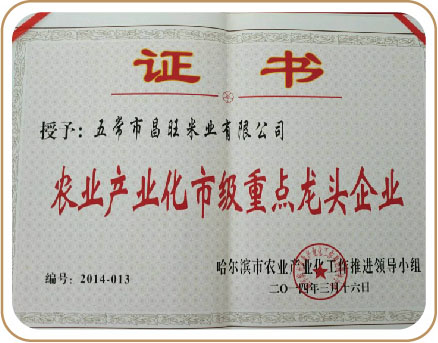 证书
授予：五常市昌旺米业有限公司
农业产业化市级重点龙头企业
哈尔滨市农业产业化工作推进领导小组
编号：2014-013
二〇一四年三月十六日